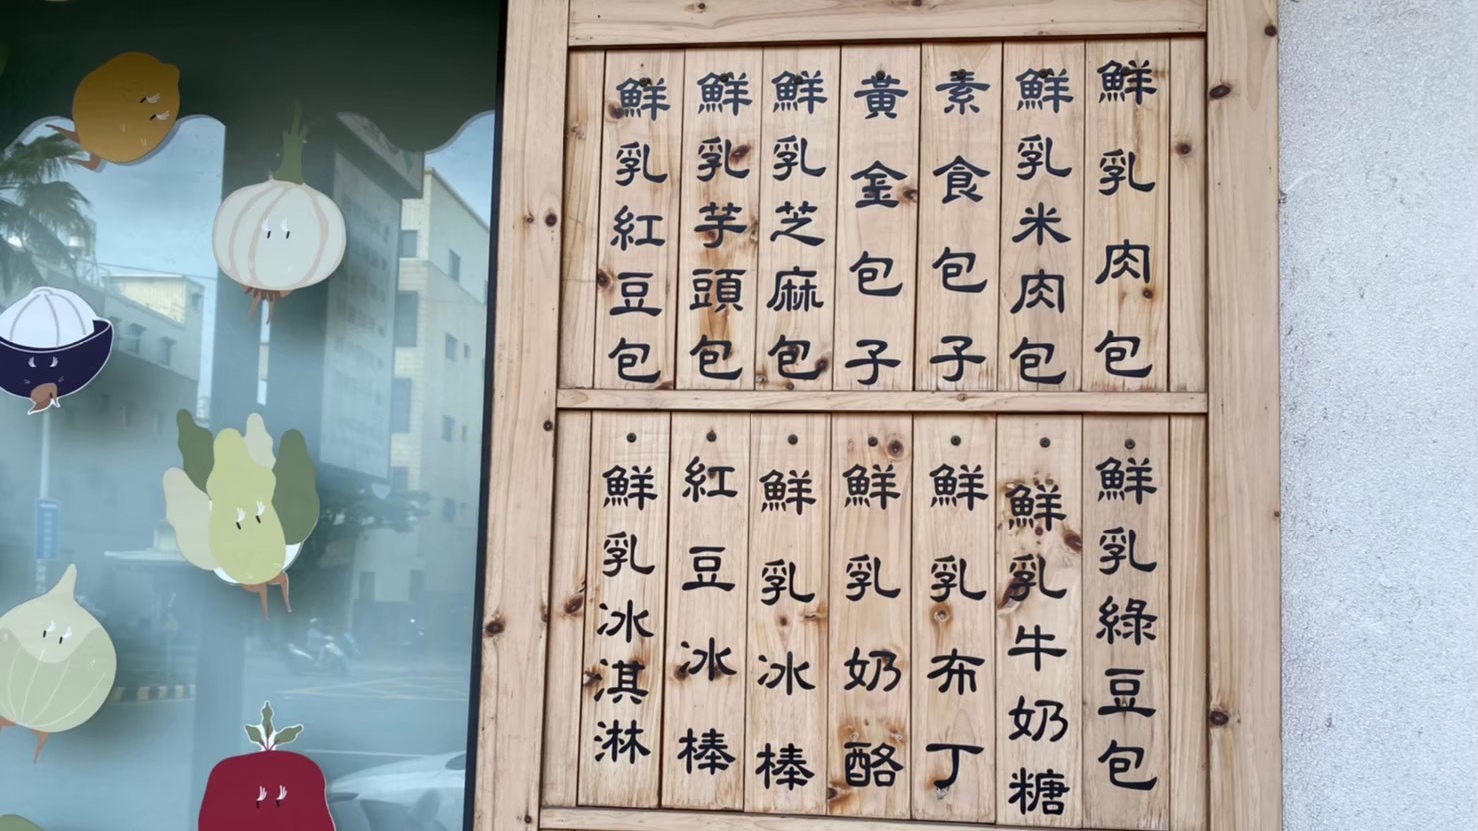 鮮乳肉包
鮮乳米肉包
素食包子
黃金包子
鮮乳芝麻包
鮮乳芋頭包
鮮乳紅豆包
鮮乳綠豆包
鮮乳牛奶糖
鮮乳布丁
鮮乳奶酪
鮮乳冰棒
紅豆冰棒
鮮乳冰淇淋